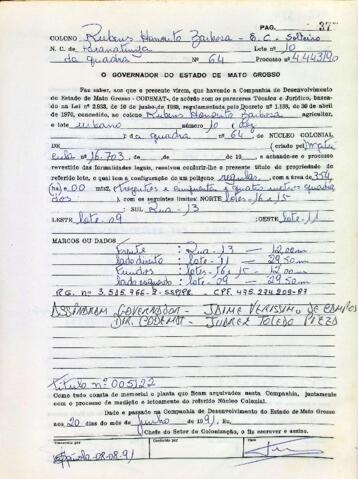 PAG. 37
COLONO Rubens Hanorito Barbosa - E.C. Solteiro
N. C. de Paranatinga Lote nº 10
da quadra Nº 64 Processo nº 4.443/90
O GOVERNADOR DO ESTADO DE MATO GROSSO
Faz saber, aos que a presente virem, que havendo a Companhia de Desenvolvimento
do Estado de Mato Grosso - CODEMAT-, de acordo com os pareceres Técnico e Jurídico, basea-
do na Lei nº 2.938, de 10 de junho de 1969, regulamentada pelo Decreto nº 1.138, de 30 de abril
de 1970, concedido, ao colono Rubens Hanorito Barbosa agricultor,
o lote urbano número 10 (dez)
da quadra nº 64 do NÚCLEO COLONIAL
DE (criado pel matrí
cula nº 16.703, de de de 19 , e achando-se o processo
revestido das formalidades legais, resolveu conferir-lhe o presente título de propriedade do
referido lote, o qual tem a configuração de um polígono regular, com a área de 354
ha) e 00 mts2. (trezentos e cinquenta e quatro metros quadra
dos), com os seguintes limites: NORTE lotes-16 e 15
: SUL Rua-13
LESTE lote-09 :OESTE lote-11
MARCOS OU DADOS
Frente : Rua-13 — 12,00m
lado direito : lote-11 — 29,50m
Fundos : lotes-16 e 15 — 12,00m
lado esquerdo : lote-09 — 29,50m
R.G. nº 3.515.766-2-SSP/PR. - CPF. 475.274.209-97
ASSINARAM GOVERNADOR - JAIME VERISSIMO DE CAMPOS
DIR. CODEMAT - JUAREZ TOLEDO PIZZA
Título nº 005122
Como tudo consta de memorial e planta que ficam arquivados nesta Companhia, juntamente
com o processo de medição e loteamento do referido Núcleo Colonial.
Dado e passado na Companhia de Desenvolvimento do Estado de Mato Grosso
aos 20 dias do mês de junho de 1991. Eu,
Chefe do Setor de Colonização, o fiz escrever e assino.
Transcrito por Conferido por Visto
08-08-91